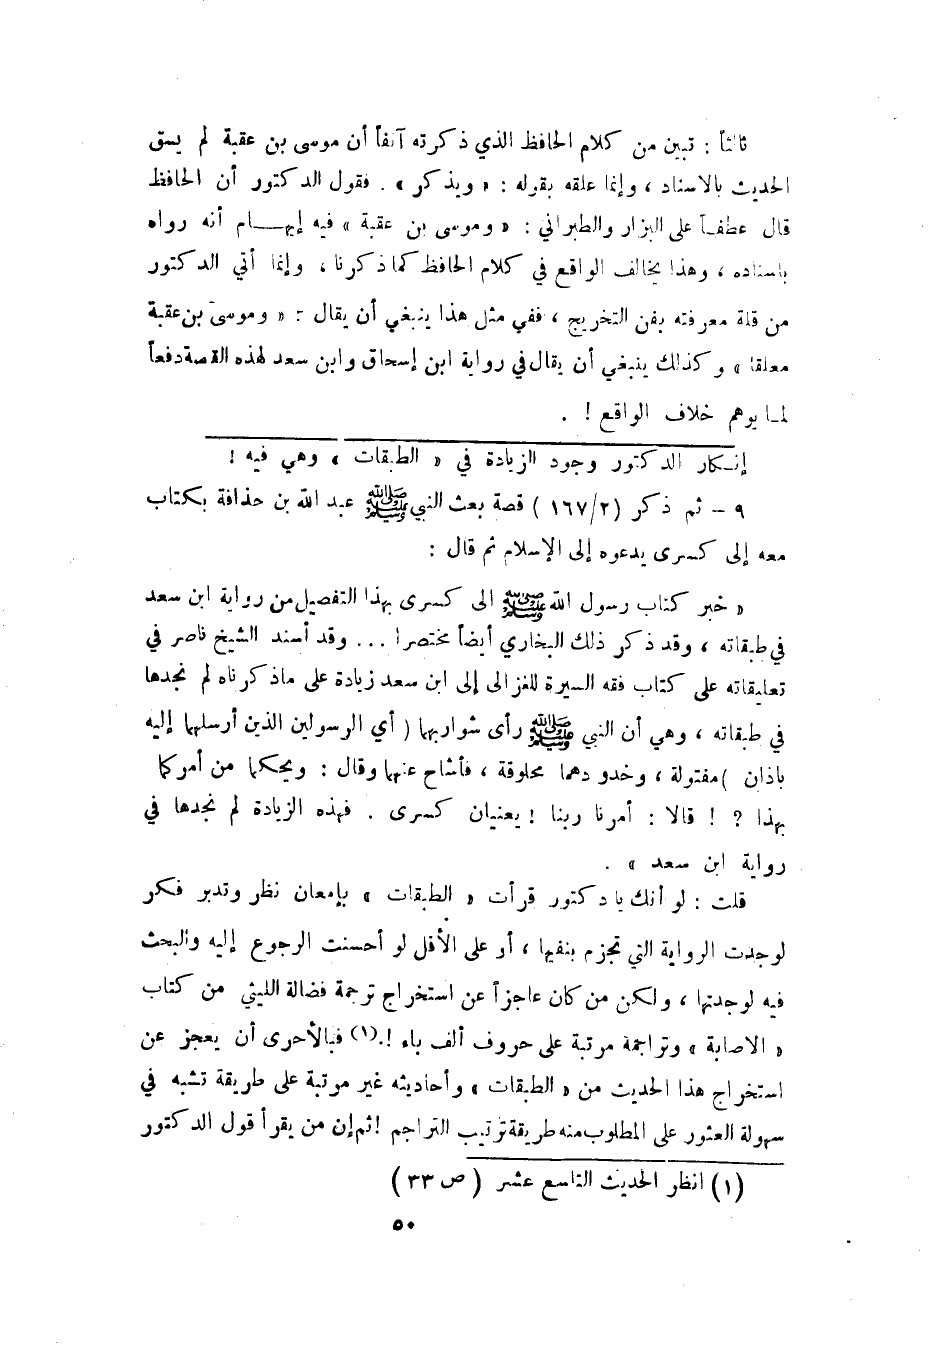 ثالثاً : تبين من كلام الحافظ الذي ذكرته آنفاً أن موسى بن عقبة لم يسق
الحديث بالاسناد ، وإنما علقه بقوله : « ويذكر » . فقول الدكتور أن الحافظ
قال عطفاً على البزار والطبراني : « وموسى بن عقبة » فيه إيهــام أنه رواه
باسناده ، وهذا يخالف الواقع في كلام الحافظ كما ذكرنا ، وإنما أتي الدكتور
من قلة معرفته بفن التخريج ، ففي مثل هذا ينبغي أن يقال : « وموسى بن عقبة
معلقا » وكذلك ينبغي أن يقال في رواية ابن إسحاق وابن سعد لهذه القصة دفعاً
لما يوهم خلاف الواقع ! .
إنـكار الدكتور وجود الزيادة في « الطبقات » وهي فيه !
٩ – ثم ذكر (١٦٧/٢ ) قصة بعث النبي ﷺ عبد الله بن حذافة بكتاب
معه إلى كسرى يدعوه إلى الإسلام ثم قال :
« خبر كتاب رسول الله ﷺ الى كسرى بهذا التفصيل من رواية ابن سعد
في طبقاته ، وقد ذكر ذلك البخاري أيضاً مختصرا ... وقد أسند الشيخ ناصر في
تعليقاته على كتاب فقه السيرة للغزالى إلى ابن سعد زيادة على ماذكرناه لم نجدها
في طبقاته ، وهي أن النبي ﷺ رأى شواربهما ( أي الرسولين الذين أرسلهما إليه
باذان ) مفتولة ، وخدودهما محلوقة ، فأشاح عنهما وقال : ويحكما من أمركما
بهذا ? ! قالا : أمرنا ربنا ! يعنيان كسرى . فهذه الزيادة لم نجدها في
رواية ابن سعد » .
قلت : لو أنك يا دكتور قرأت « الطبقات » بإمعان نظر وتدبر فكر
لوجدت الرواية التي تجزم بنفيها ، أو على الأقل لو أحسنت الرجوع إليه والبحث
فيه لوجدتها ، ولكن من كان عاجزاً عن استخراج ترجمة فضالة الليثي من كتاب
« الاصابة » وتراجمه مرتبة على حروف ألف باء !.(١) فبالأحرى أن يعجز عن
استخراج هذا الحديث من « الطبقات » وأحاديثه غير مرتبة على طريقة تشبه في
سهولة العثور على المطلوب منه طريقة ترتيب التراجم ! ثم إن من يقرأ قول الدكتور
(١) انظر الحديث التاسع عشر ( ص ٣٣ )
٥٠